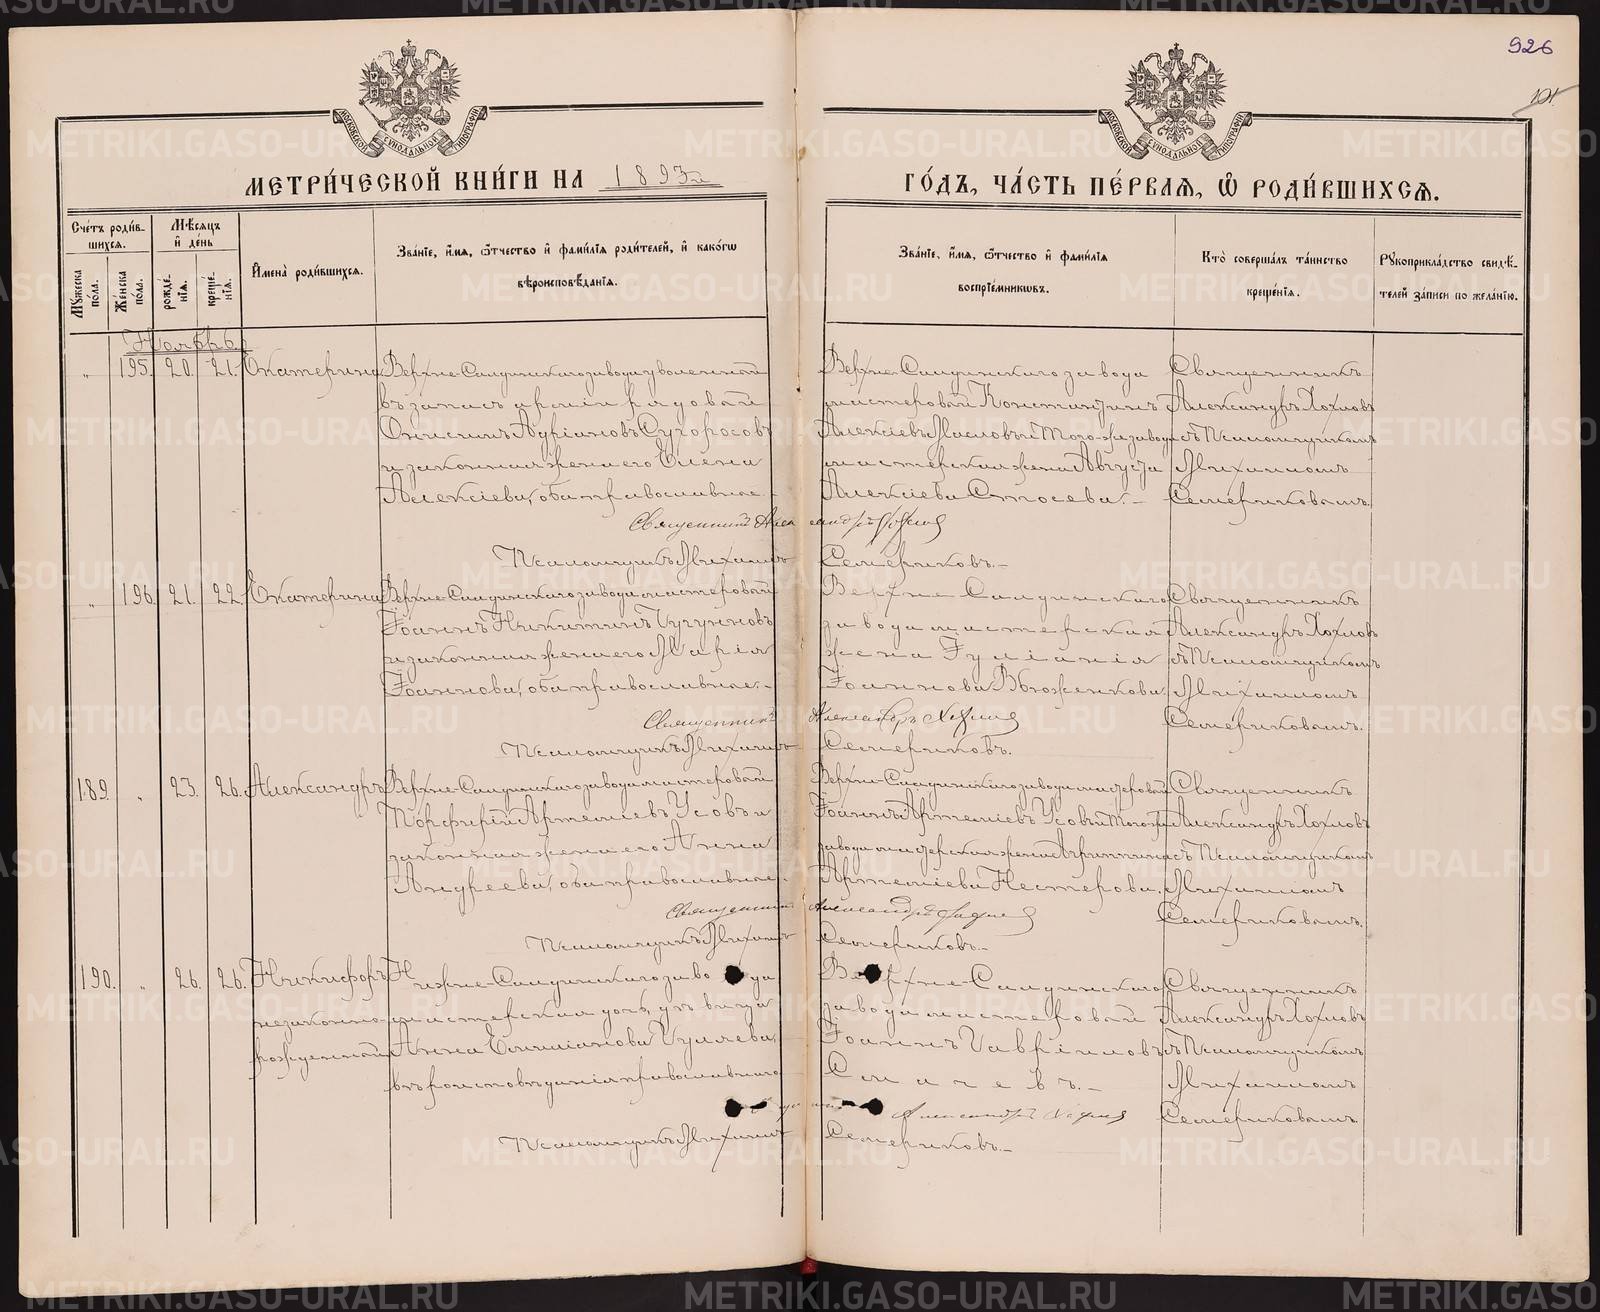 926
101
МОСКОВСКОЙ СѴНОДАЛЬНОЙ ТИПОГРАФІИ
МОСКОВСКОЙ СѴНОДАЛЬНОЙ ТИПОГРАФІИ
МЕТРИ́ЧЕСКОЙ КНИ́ГИ НА 1893й
ГО́ДЪ, ЧА́СТЬ ПЕ́РВАЯ, Ѡ РОДИ́ВШИХСЯ.
Сче́тъ роди́в-
шихся.
Мѣ́сяцъ
и҆ де́нь
Мꙋ́жеска
по́ла.
Же́нска
по́ла.
рожде́-
нїя.
креще́-
нїя.
И҆мена̀ роди́вшихся.
Зва́нїе, и҆́мя, ѻ҆́тчество и҆ фами́лїя роди́телей, и҆ како́гѡ
вѣроисповѣ́данїя.
Зва́нїе, и҆́мя, ѻ҆́тчество и҆ фами́лїя
воспрїе́мникѡвъ.
Кто̀ соверша́лъ та́инство
креще́нїя.
Рꙋкоприкла́дство свидѣ́-
телей за́писи по жела́нїю.
Ноябрь.
" 195. 20. 21. Екатерина
Верхне-Салдинскаго завода уволенный
въ запасъ арміи рядовой
Онисимъ Адріановъ Сухоросовъ
и законная жена его Елена
Алексіева, оба православные.-
Верхне-Салдинскаго завода
мастеровой Константинъ
Алексіевъ Масловъ и того-же завода
мастерская жена Августа
Алексіева Стосева.-
Священникъ
Александръ Хохловъ
съ Псаломщикомъ
Михаиломъ
Семериковымъ.
Священникъ Александръ Хохловъ
Псаломщикъ Михаилъ Семериковъ.-
" 196. 21. 22. Екатерина
Верхне-Салдинскаго завода мастеровой
Іоаннъ Никитинъ Чугуновъ
и законная жена его Марія
Іоаннова, оба православные.-
Верхне-Салдинскаго
завода мастерская
жена Іуліанія
Іоаннова
Священникъ
Александръ Хохловъ
съ Псаломщикомъ
Михаиломъ
Семериковымъ.
Священникъ Александръ Хохловъ
Псаломщикъ Михаилъ Семериковъ.
189. " 23. 26. Александръ
Верхне-Салдинскаго завода мастеровой
Порфирій Артеміевъ Усовъ и
законная жена его Анна
Андреева, оба православные.
Верхне-Салдинскаго завода мастеровой
Іоаннъ Артеміевъ Усовъ и того-же
завода мастерская жена Агриппина
Артеміева Нестерова.
Священникъ
Александръ Хохловъ
съ Псаломщикомъ
Михаиломъ
Семериковымъ.
Священникъ Александръ Хохловъ
Псаломщикъ Михаилъ Семериковъ.-
190. " 26. 26. Никифоръ
незаконно-
рожденный
Нижне-Салдинскаго завода
мастерская дочь, дѣвица
Анна Емиліанова Гуляева,
вѣроисповѣданія православнаго
Верхне-Салдинскаго
завода мастеровой
Іоаннъ Гавріиловъ
Сигачевъ.-
Священникъ
Александръ Хохловъ
съ Псаломщикомъ
Михаиломъ
Семериковымъ.
Священникъ Александръ Хохловъ
Псаломщикъ Михаилъ Семериковъ.-
METRIKI.GASO-URAL.RU